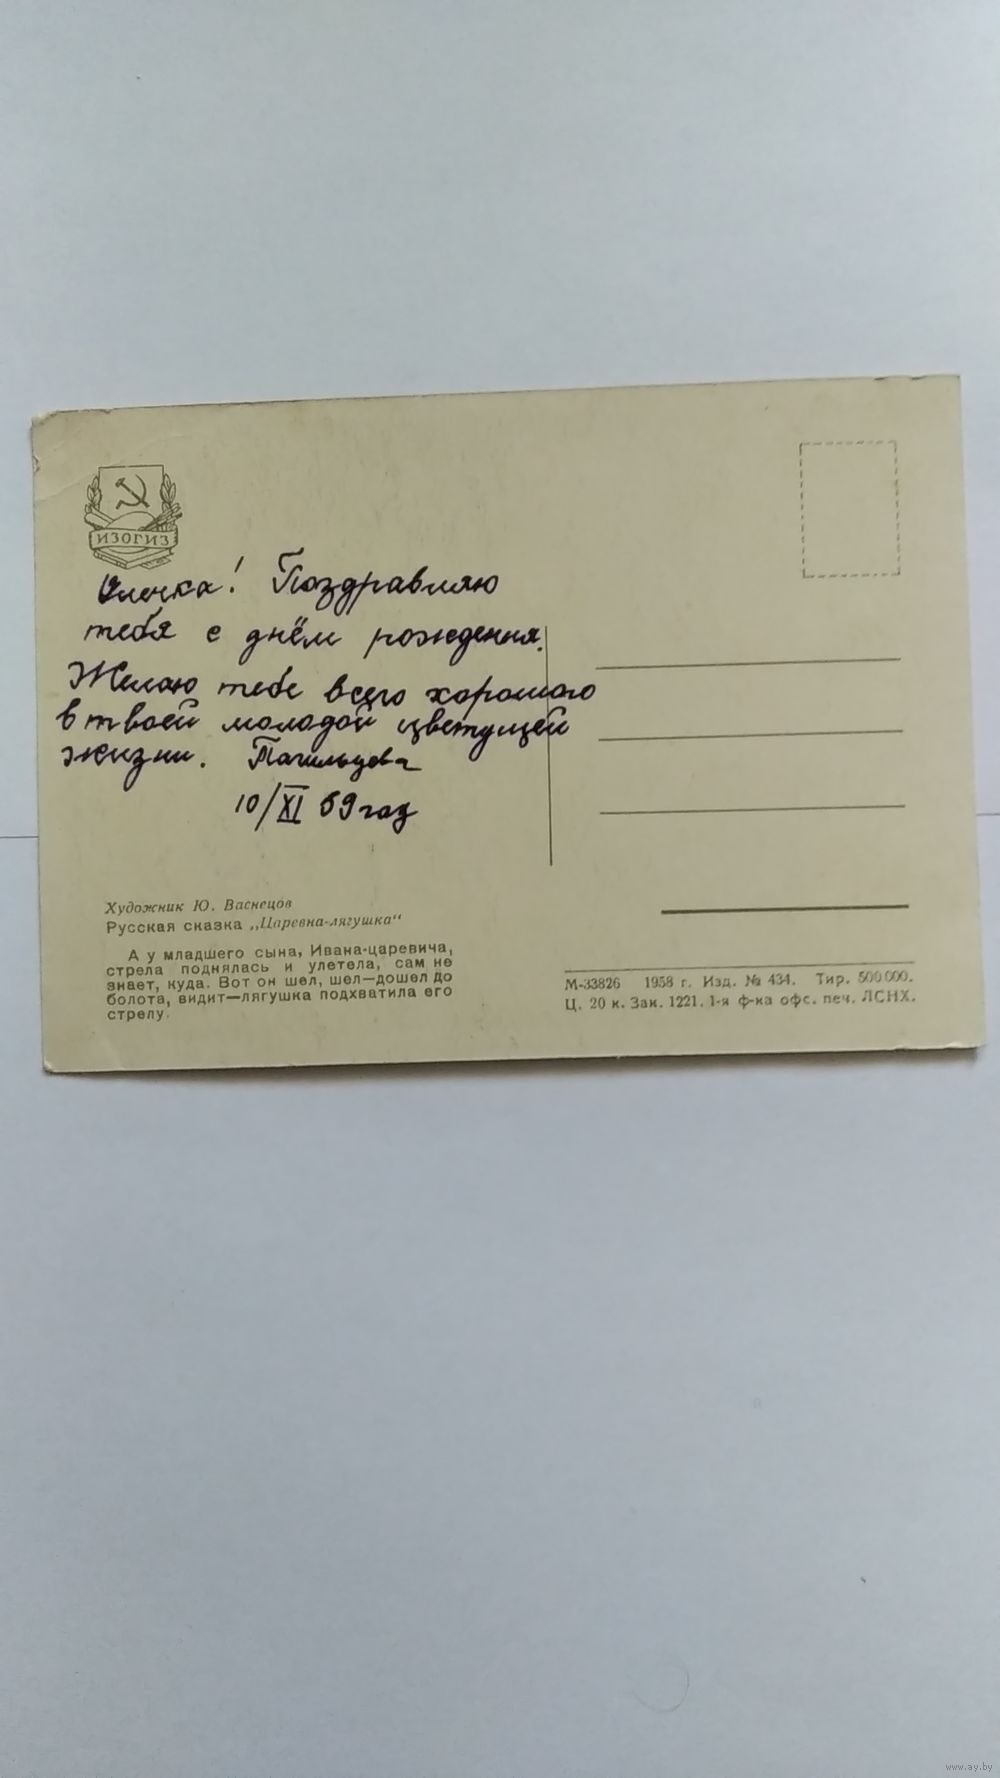 ИЗОГИЗ
Олечка! Поздравляю
тебя с днём рождения.
Желаю тебе всего хорошего
в твоей молодой цветущей
жизни. Тагильцева
10/XI 59 год
Художник Ю. Васнецов
Русская сказка „Царевна-лягушка“
А у младшего сына, Ивана-царевича,
стрела поднялась и улетела, сам не
знает, куда. Вот он шел, шел—дошел до
болота, видит—лягушка подхватила его
стрелу.
М-33826 1958 г. Изд. № 434. Тир. 500 000.
Ц. 20 к. Зак. 1221. 1-я ф-ка офс. печ. ЛСНХ.
www.ay.by